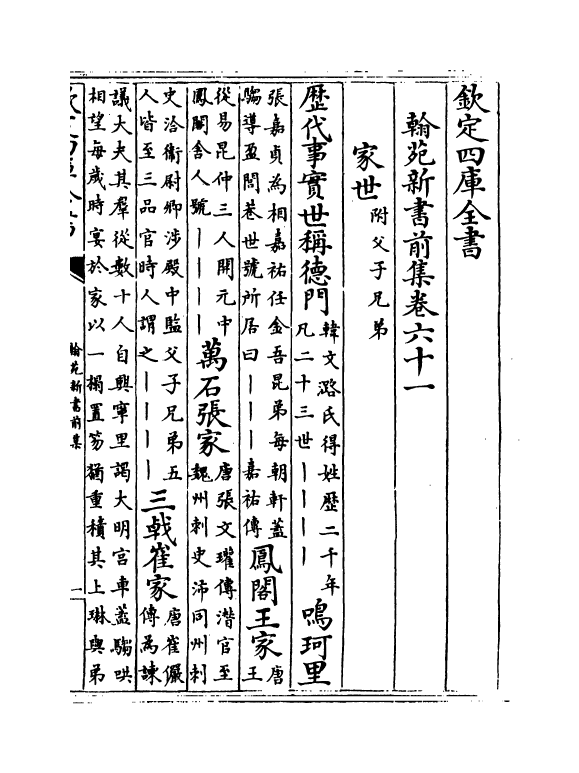 欽定四庫全書
翰苑新書前集卷六十一
家世附父子兄弟
歴代事實世稱德門韓文潞氏得姓歴二千年凡二十三世｜｜｜｜鳴珂里
張嘉貞為相嘉祐任金吾昆弟每朝軒蓋騶導盈閭巷世號所居曰｜｜｜嘉祐傳鳳閣王家唐王
從易昆仲三人開元中鳳閣舍人號｜｜｜｜萬石張家唐張文瓘傳潛官至魏州刺史沛同州刺
史洽衞尉卿涉殿中監父子兄弟五人皆至三品官時人謂之｜｜｜｜三戟崔家唐崔儼傳為諫
議大夫其羣從數十人自興寧里謁大明宫車蓋騶哄相望每歳時宴於家以一榻置笏猶重積其上琳與弟
翰苑新書前集
一